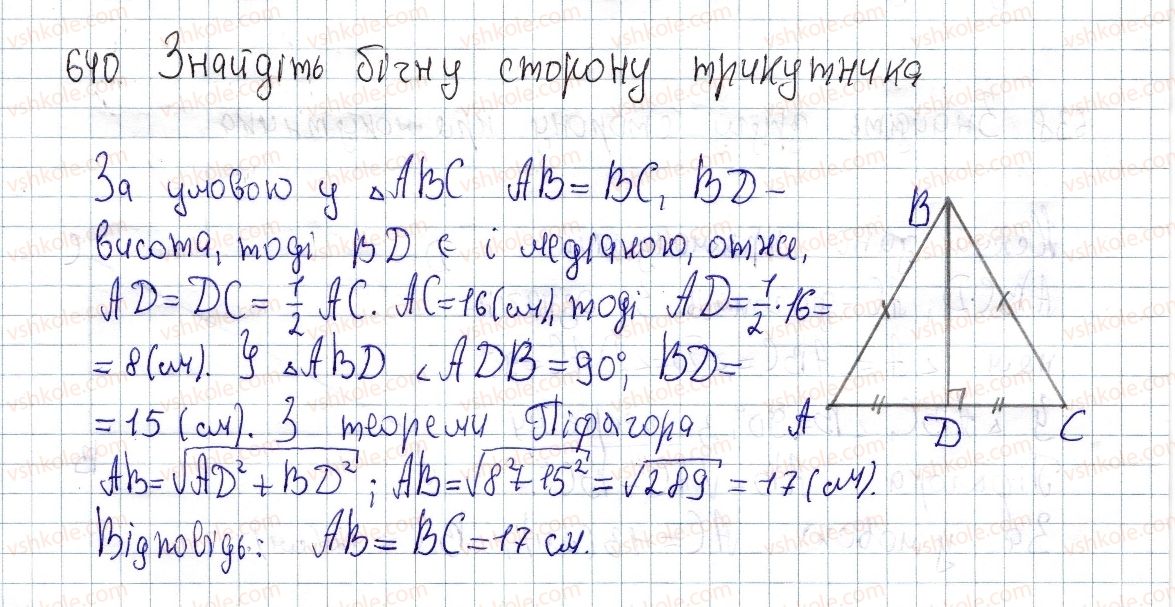 640 Знайдіть бічну сторону трикутника
За умовою у △ABC AB = BC, BD –
висота, тоді BD є і медіаною, отже,
AD = DC = 1/2 AC. AC = 16 (см), тоді AD = 1/2 · 16 =
= 8 (см). У △ABD ∠ADB = 90°, BD =
= 15 (см). З теореми Піфагора
AB = √(AD² + BD²); AB = √(8² + 15²) = √289 = 17 (см).
Відповідь: AB = BC = 17 см.
B
A
D
C
vshkole.com